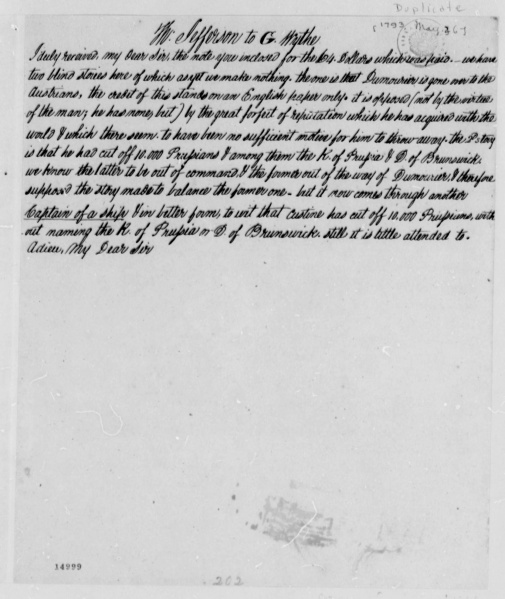 Duplicate
[1793, May, 26?]
Th. Jefferson to G. Wythe
I duly received, my dear Sir, the note you inclosed for the 64. Dollars which was paid. — we have
two blind stories here of which as yet we make nothing. the one is that Dumourier is gone over to the
Austrians. the credit of this stands on an English paper only. it is opposed (not by the virtue
of the man; he has none, but) by the great forfeit of reputation which he has acquired with the
world & which there seem to have been no sufficient motive for him to throw away. the story
is that he had cut off 10.000 Prussians & among them the K. of Prussia & D. of Brunswick.
we know the latter to be out of command & the former out of the way of Dumourier, & therefore
supposed the story made to balance the former one. but it now comes through another
Captain of a ship & in better form, to wit that Custine has cut off 10.000 Prussians, with
out naming the K. of Prussia or D. of Brunswick. still it is little attended to.
Adieu, My Dear Sir
14999
262